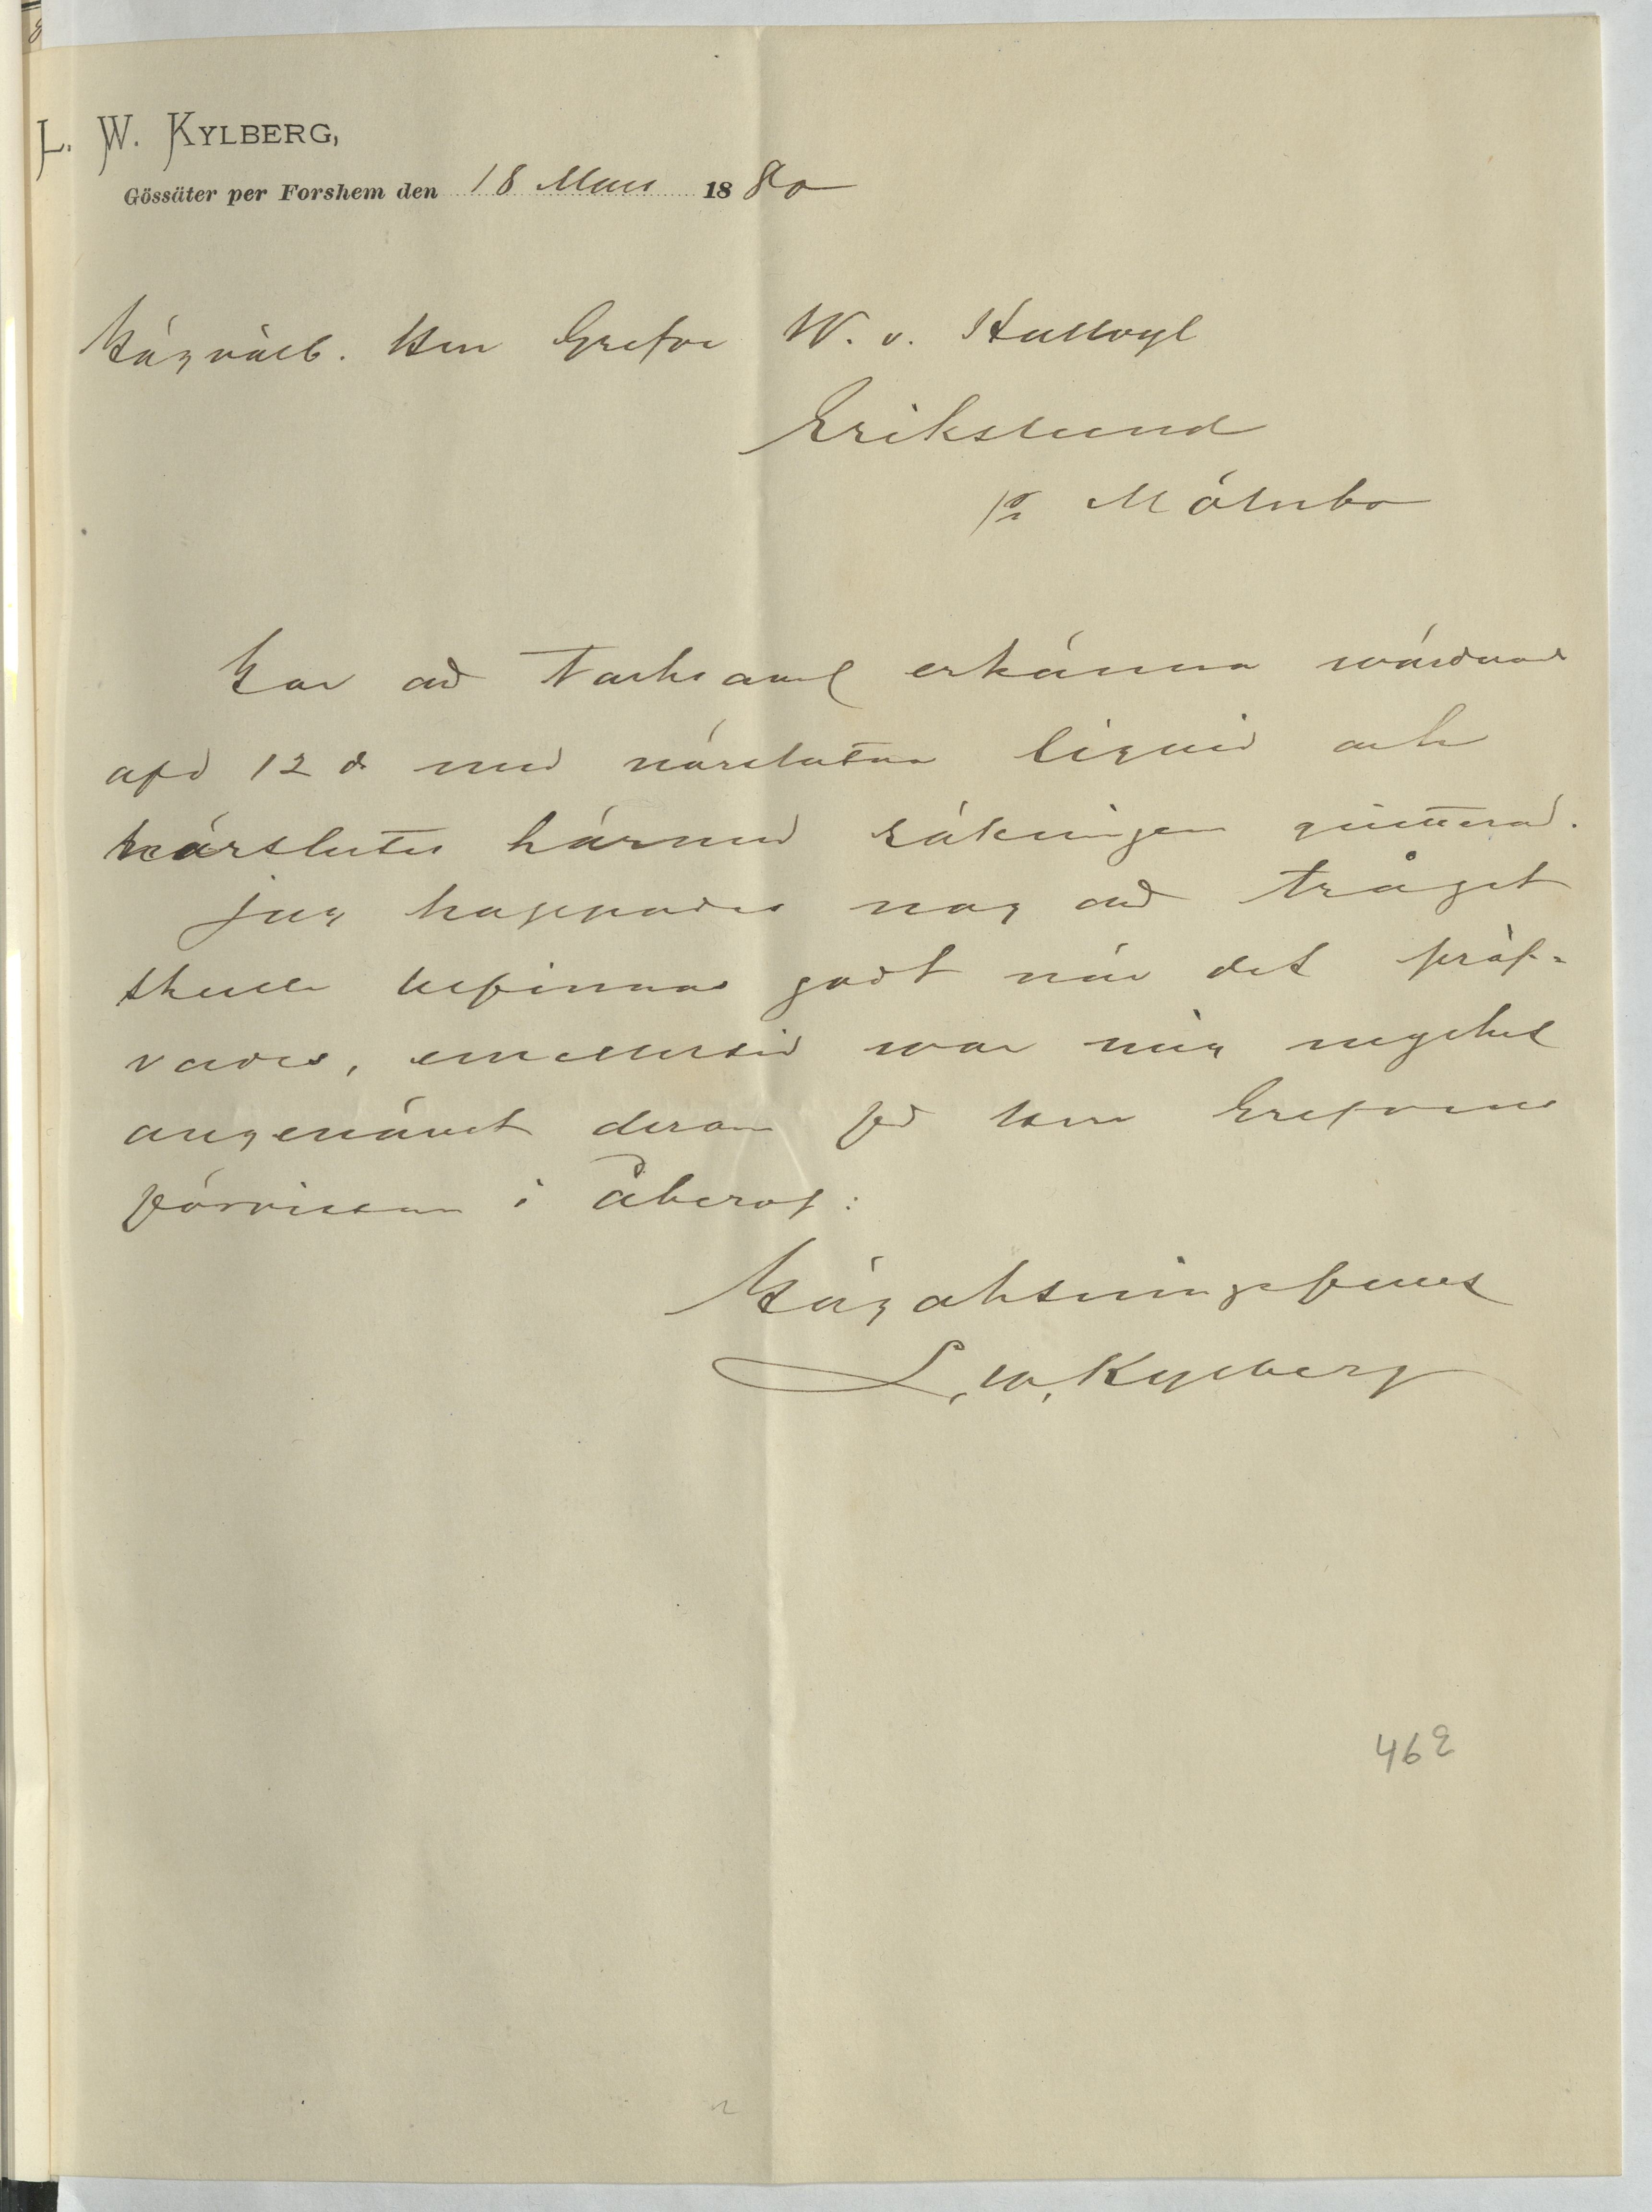 L. W. KYLBERG,
Gössäter per Forshem den 18 Mars 1880
Högvälb. Herr Grefve W. v. Hallwyl
Erikslund
pr Mölnbo
Har att tacksamt erkänna wärdnad
afd 12 ds med närslutna liquid och
närslutes härmed räkningen quitterad.
Jag hoppades nog att tråget
skulle befinnas godt när det pröf-
vades, emellertid war mig mycket
angenämt derom få Herr Grefvens
förvissan i åberop:
Högaktningsfullt
L. W. Kylberg
462